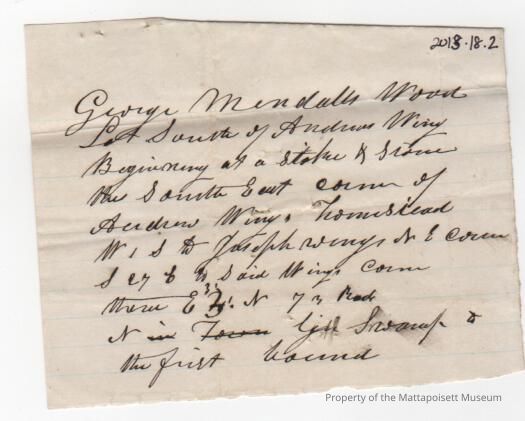 2013.18.2
George Mendalls Wood
Lot South of Andrew Wing
Beginning at a Stake & Stone
the South East corner of
Andrew Wings homestead
W 1 S to Joseph wings N E corner
S 27 E to Said Wings corner
thence E 3 N 73 Rods
N in Town Swamp to
the first bound
Property of the Mattapoisett Museum